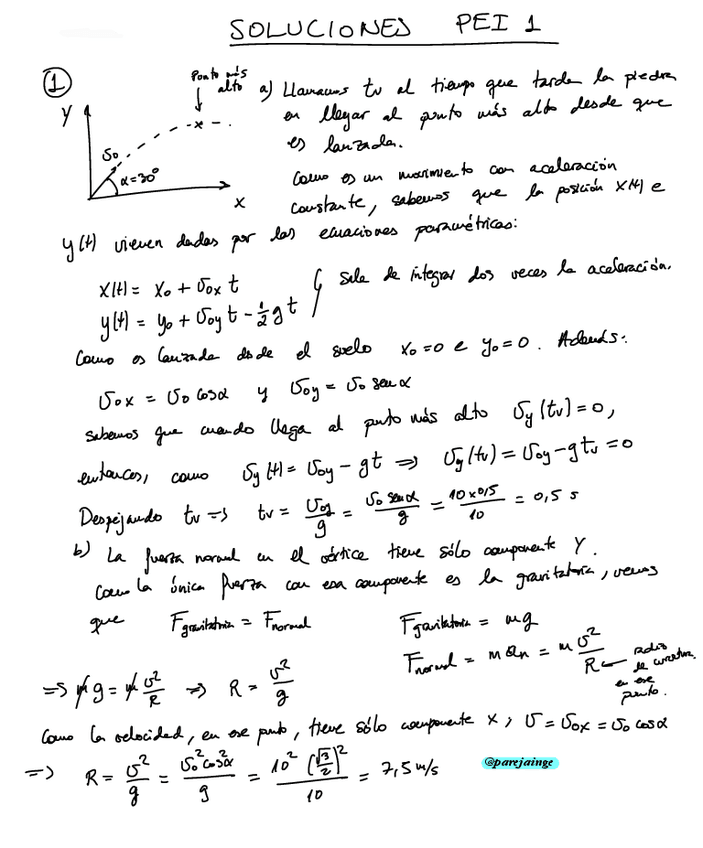 SOLUCIONES PEI 1
①
Punto más alto
Y
v₀
α=30º
X
a) Llamamos tv al tiempo que tarda la piedra
en llegar al punto más alto desde que
es lanzada.
Como es un movimiento con aceleración
constante, sabemos que la posición x(t) e
y(t) vienen dadas por las ecuaciones paramétricas:
x(t) = x₀ + v₀ₓ t
y(t) = y₀ + v₀y t - 1/2 g t
Sale de integrar dos veces la aceleración.
Como es lanzada desde el suelo x₀=0 e y₀=0. Además:
v₀ₓ = v₀ cosα y v₀y = v₀ senα
sabemos que cuando llega al punto más alto vy(tv)=0,
entonces, como vy(t) = v₀y - gt ⇒ vy(tv) = v₀y - gtv = 0
Despejando tv ⇒ tv = v₀y/g = v₀ senα/g = 10×0,5/10 = 0,5 s
b) La fuerza normal en el vértice tiene sólo componente Y.
Como la única fuerza con esa componente es la gravitatoria, vemos
que Fgravitatoria = Fnormal
Fgravitatoria = mg
Fnormal = m an = m v²/R ← radio de curvatura en ese punto.
⇒ mg = m v²/R ⇒ R = v²/g
Como la velocidad, en ese punto, tiene sólo componente x; v = v₀ₓ = v₀ cosα
⇒ R = v²/g = v₀² cos²α/g = 10² (√3/2)²/10 = 7,5 m/s
@parejainge